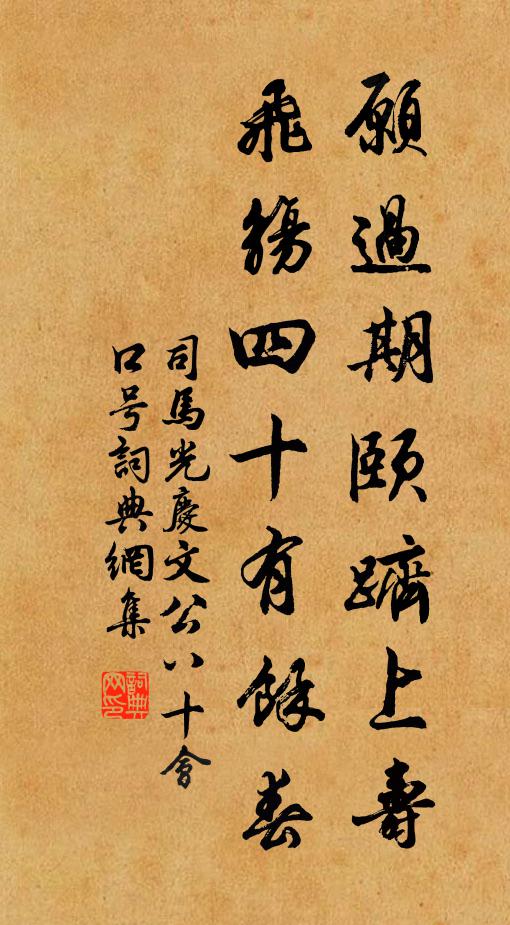 願過期頤躋上壽
飛觴四十有餘春
司馬光慶文公八十會
口号詞典網集
詞典网印